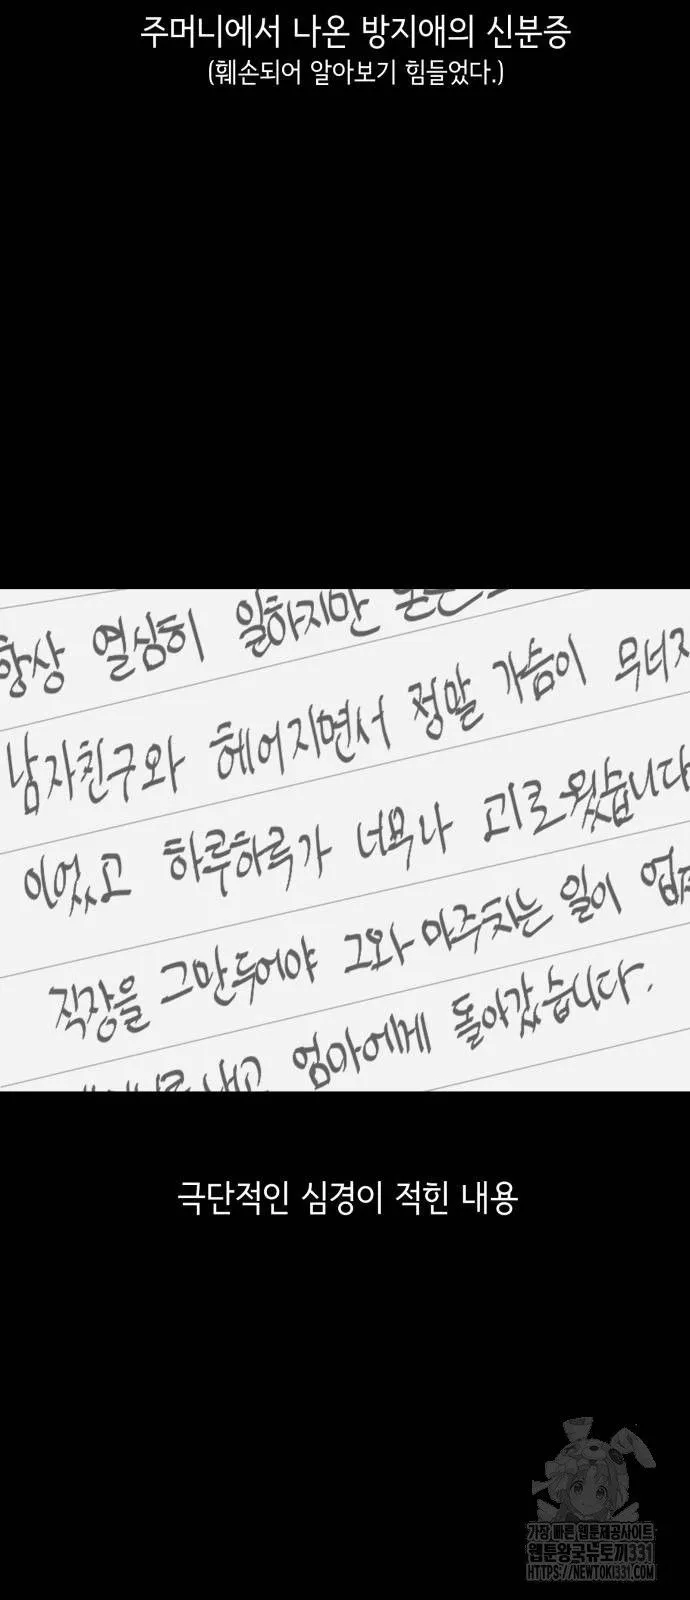 주머니에서 나온 방지애의 신분증
(훼손되어 알아보기 힘들었다.)
항상 열심히 일하지만
남자친구와 헤어지면서 정말 가슴이 무너지
이었고 하루하루가 너무나 괴로웠습니다
직장을 그만두어야 그와 마주치는 일이 없
엄마에게 돌아갔습니다.
극단적인 심경이 적힌 내용
가장 빠른 웹툰제공사이트
웹툰왕국뉴토끼331
HTTPS://NEWTOKI331.COM